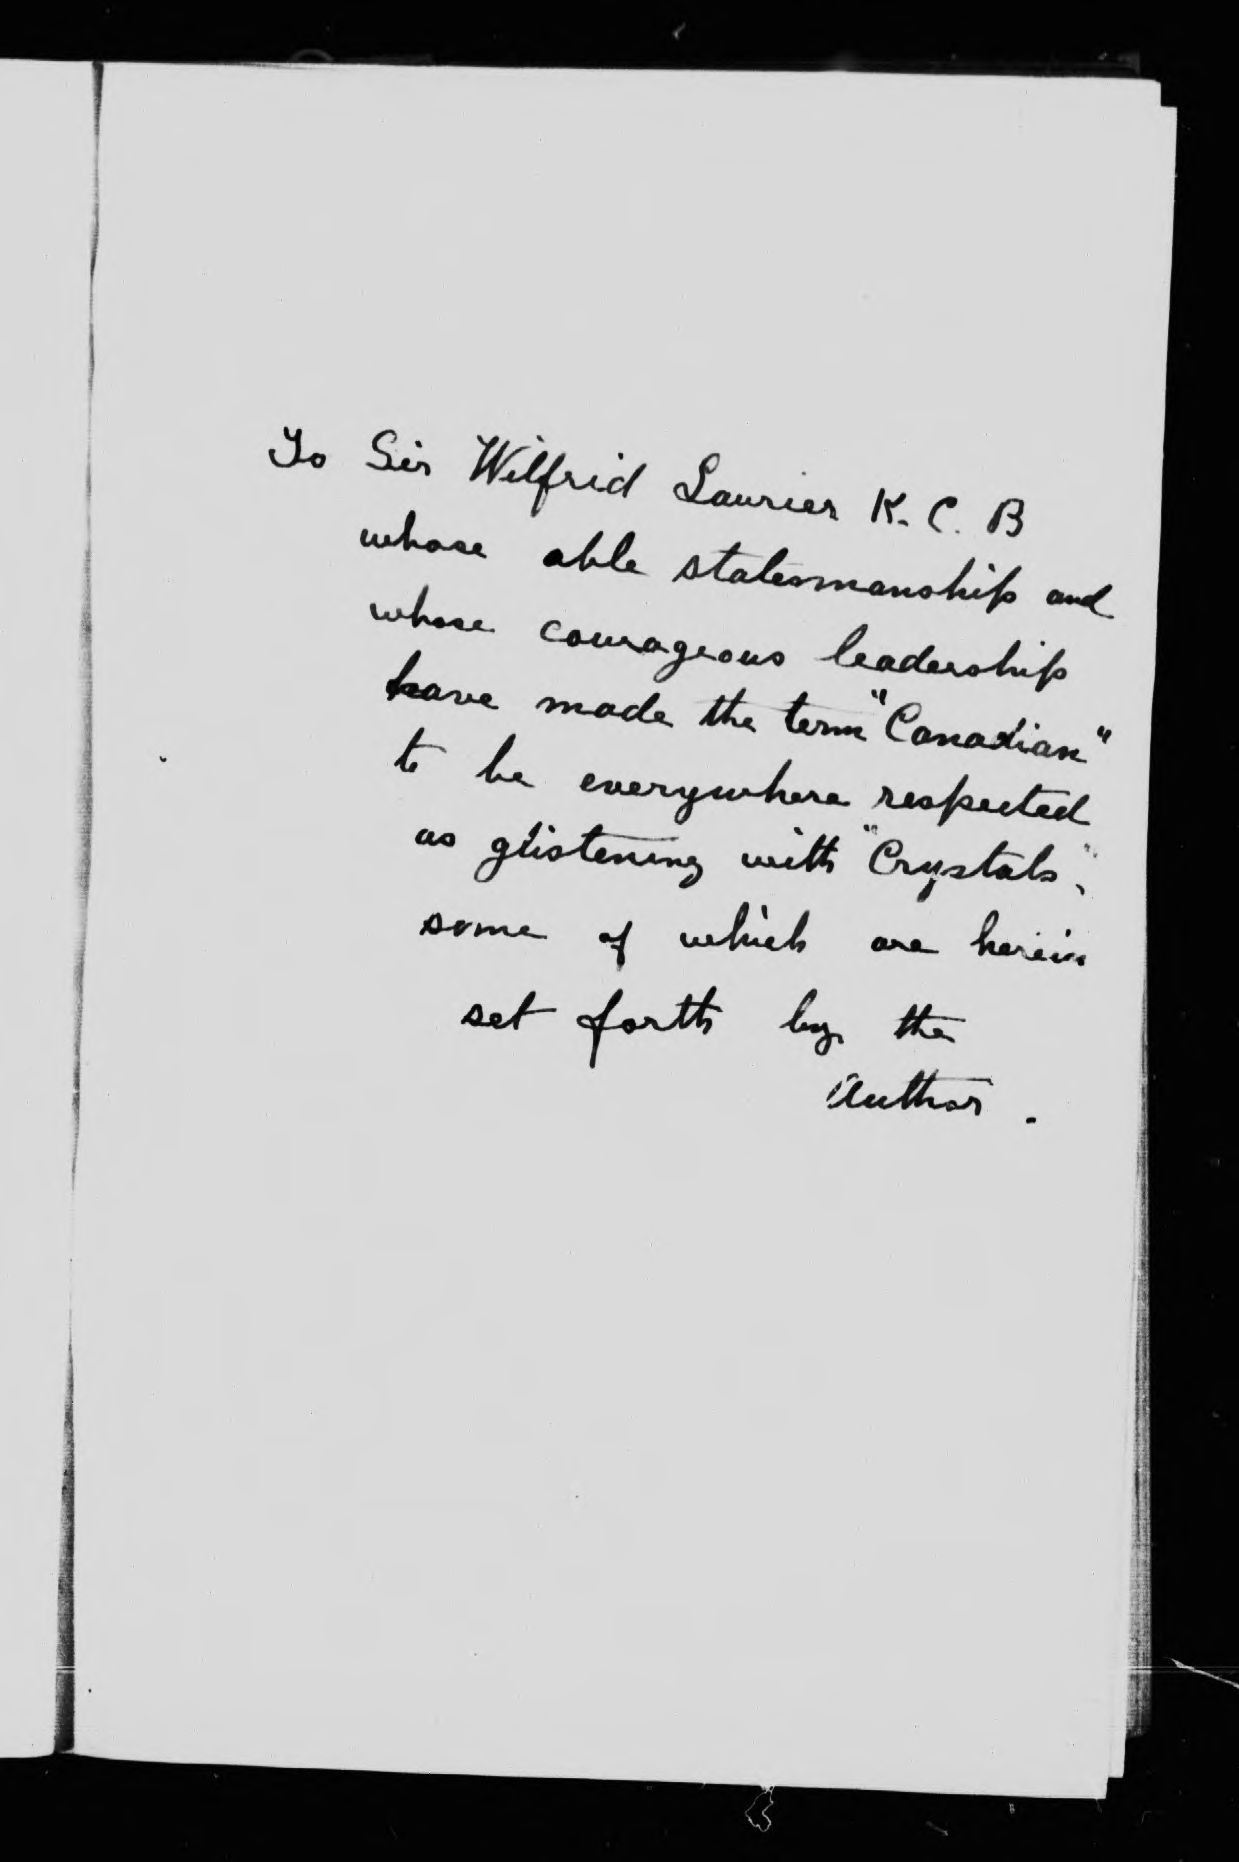 To Sir Wilfrid Laurier K. C. B
whose able statesmanship and
whose courageous leadership
have made the term "Canadian"
to be everywhere respected
as glistening with "Crystals",
some of which are herein
set forth by the
Author.